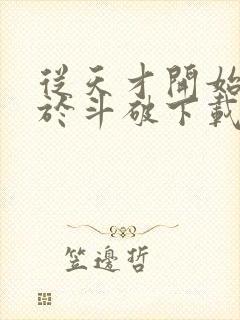 從天才開始
於斗破下載
笠邊哲